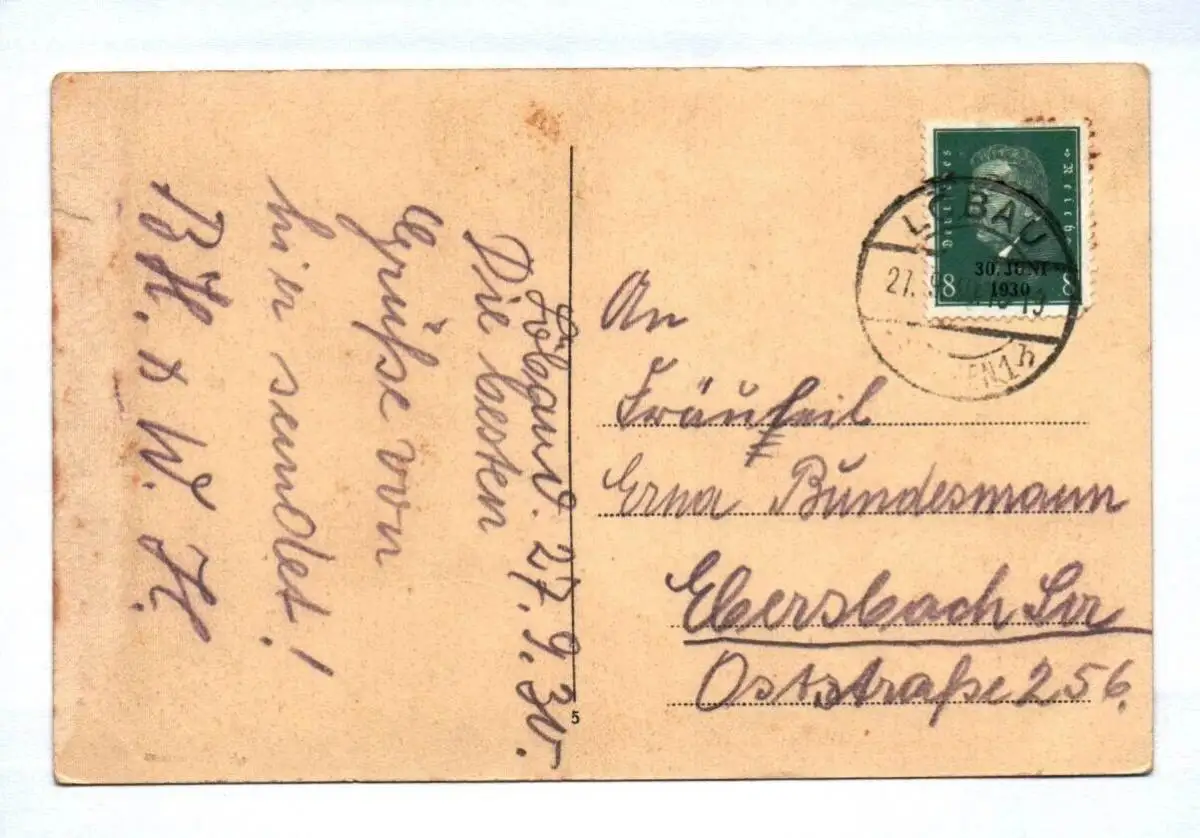 Löbau d. 27. 9. 30.
Die besten
Grüße von
hier sendet!
B. H. & W. H.
An
Fräulein
Erna Bundesmann
Ebersbach Sa
Oststraße 256.
Deutsches Reich
8 8
30. JUNI
1930
LÖBAU
27.
5